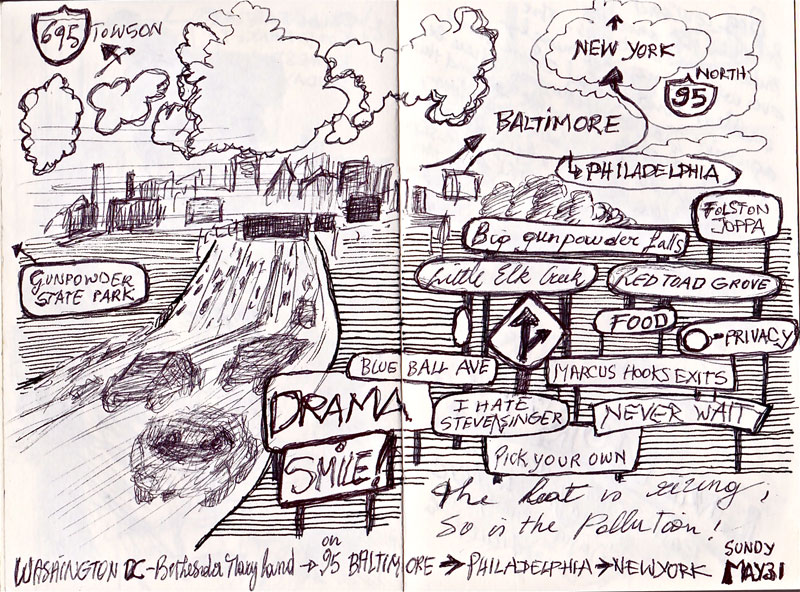 695 TOWSON
NEW YORK
NORTH
95
BALTIMORE
PHILADELPHIA
FOLSTON
JOPPA
Big gunpowder falls
Little Elk Creek
RED TOAD GROVE
GUNPOWDER
STATE PARK
FOOD
PRIVACY
BLUE BALL AVE
MARCUS HOOKS EXITS
DRAMA
I HATE
STEVENSINGER
NEVER WAIT
SMILE!
PICK YOUR OWN
The heat is rising,
So is the Pollution!
on
WASHINGTON DC - Bethesda Maryland → 95 BALTIMORE → PHILADELPHIA → NEW YORK
SUNDY
MAY 31